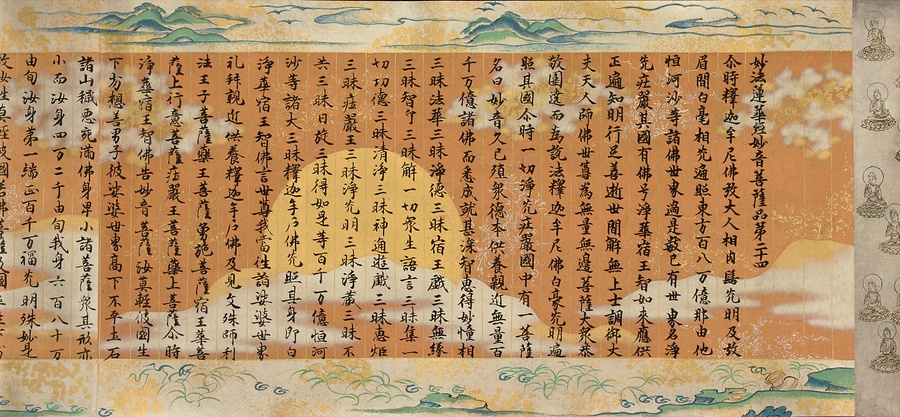 妙法蓮華經妙音菩薩品第二十四
尒時釋迦牟尼佛放大人相肉髻光明及放
眉間白毫相光遍照東方百八万億那由他
恒河沙等諸佛世界過是數已有世界名淨
光莊嚴其國有佛号淨華宿王智如來應供
正遍知明行足善逝世間解無上士調御丈
夫天人師佛世尊為無量無邊菩薩大衆恭
敬圍遶而為說法釋迦牟尼佛白毫光明遍
照其國尒時一切淨光莊嚴國中有一菩薩
名曰妙音久已殖衆德本供養親近無量百
千万億諸佛而悉成就甚深智慧得妙幢相
三昧法華三昧淨德三昧宿王戲三昧無緣
三昧智印三昧解一切衆生語言三昧集一
切功德三昧清淨三昧神通遊戲三昧慧炬
三昧莊嚴王三昧淨光明三昧淨藏三昧不
共三昧日旋三昧得如是等百千万億恒河
沙等諸大三昧釋迦牟尼佛光照其身即白
淨華宿王智佛言世尊我當往詣娑婆世界
礼拜親近供養釋迦牟尼佛及見文殊師利
法王子菩薩藥王菩薩勇施菩薩宿王華菩
薩上行意菩薩莊嚴王菩薩藥上菩薩尒時
淨華宿王智佛告妙音菩薩汝莫輕彼國生
下劣想善男子彼娑婆世界高下不平土石
諸山穢惡充滿佛身卑小諸菩薩衆其形亦
小而汝身四万二千由旬我身六百八十万
由旬汝身第一端正百千万福光明殊妙是